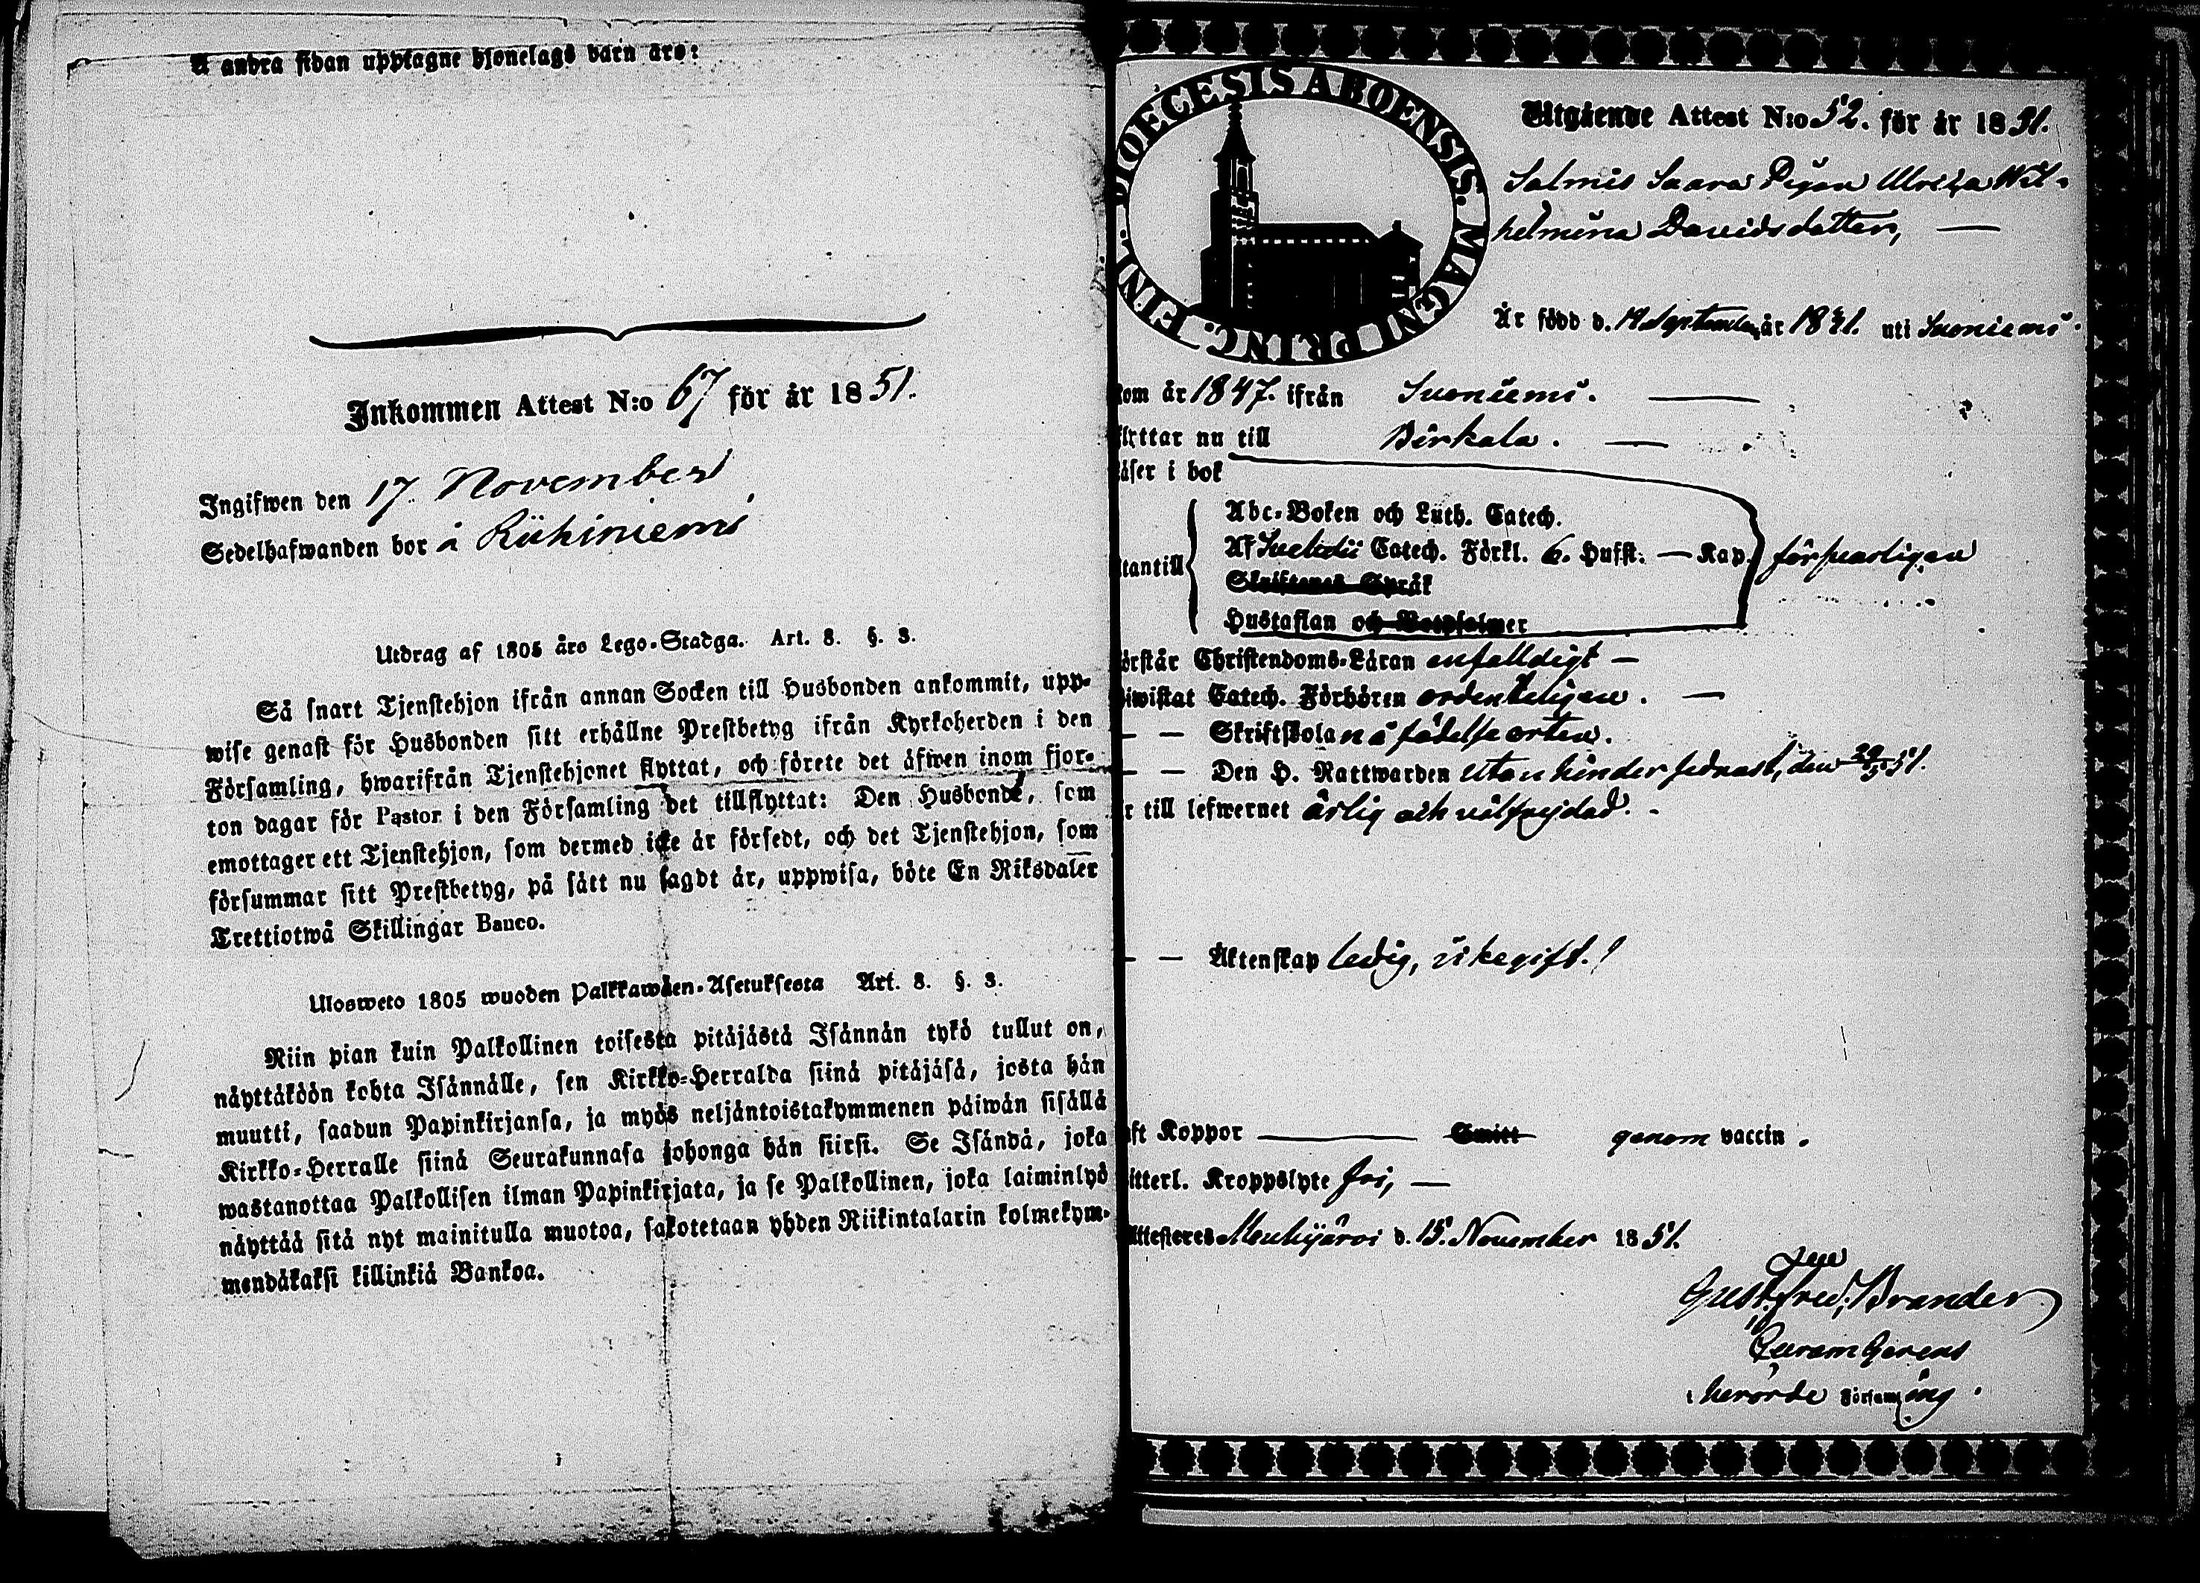 A andra sidan upptagne hjonelags barn äro:
Inkommen Attest N:o 67 för år 1851.
Ingifwen den 17 November
Sedelhafwanden bor å Riihiniemi
Utdrag af 1805 års Lego-Stadga. Art. 8. §. 3.
Så snart Tjenstehjon ifrån annan Socken till Husbonden ankommit, upp-
wise genast för Husbonden sitt erhållne Prestbetyg ifrån Kyrkoherden i den
Församling, hwarifrån Tjenstehjonet flyttat, och förete det äfwen inom fjor-
ton dagar för Pastor i den Församling det tillflyttat: Den Husbonde, som
emottager ett Tjenstehjon, som dermed icke är försedt, och det Tjenstehjon, som
försummar sitt Prestbetyg, på sätt nu sagdt är, uppwisa, böte En Riksdaler
Trettiotwå Skillingar Banco.
Ulosweto 1805 wuoden Palkkawäen-Asetuksesta Art. 8. §. 3.
Niin pian kuin Palkollinen toisesta pitäjästä Isännän tykö tullut on,
näyttäköön kohta Isännälle, sen Kirkko-Herralda siinä pitäjäsä, josta hän
muutti, saadun Papinkirjansa, ja myös neljäntoistakymmenen päiwän sisällä
Kirkko-Herralle siinä Seurakunnasa johonga hän siirsi. Se Isändä, joka
wastanottaa Palkollisen ilman Papinkirjata, ja se Palkollinen, joka laiminlyö
näyttää sitä nyt mainitulla muotoa, sakotetaan yhden Riikintalarin kolmekym-
mendäkaksi killinkiä Bankoa.
DIOECESIS ABOENSIS. MAGNI PRINC. FINL.
Utgående Attest N:o 52. för år 1851.
Salmis Saara Pigan Ulrika Wil-
helmina Davidsdotter,
Är född d. 19 September år 1831. uti Suoniemi.
kom år 1847. ifrån Suoniemi.
flyttar nu till Birkala.
läser i bok
Abc-Boken och Luth. Catech.
Af Svebelii Catech. Förkl. 6. Hufst. — Kap. försvarligen
utantill Skriftenes Språk
Hustaflan och Botpsalmer
förstår Christendoms-Läran enfalldigt —
biwistat Catech. Förhören ordenteligen. —
— — Skriftskolan å födelse orten.
— — Den H. Nattwarden utan hinder sednast, den 51.
är till lefwernet ärlig och välfrejdad. -
— — Äktenskap ledig, icke gift.
haft Koppor Smitt genom vaccin.
witterl. Kroppslyte fri, —
Attesteres Mouhijärvi d. 15. November 1851.
Gust. Fred. Brander
Curam Gerens
i berörde Församling.